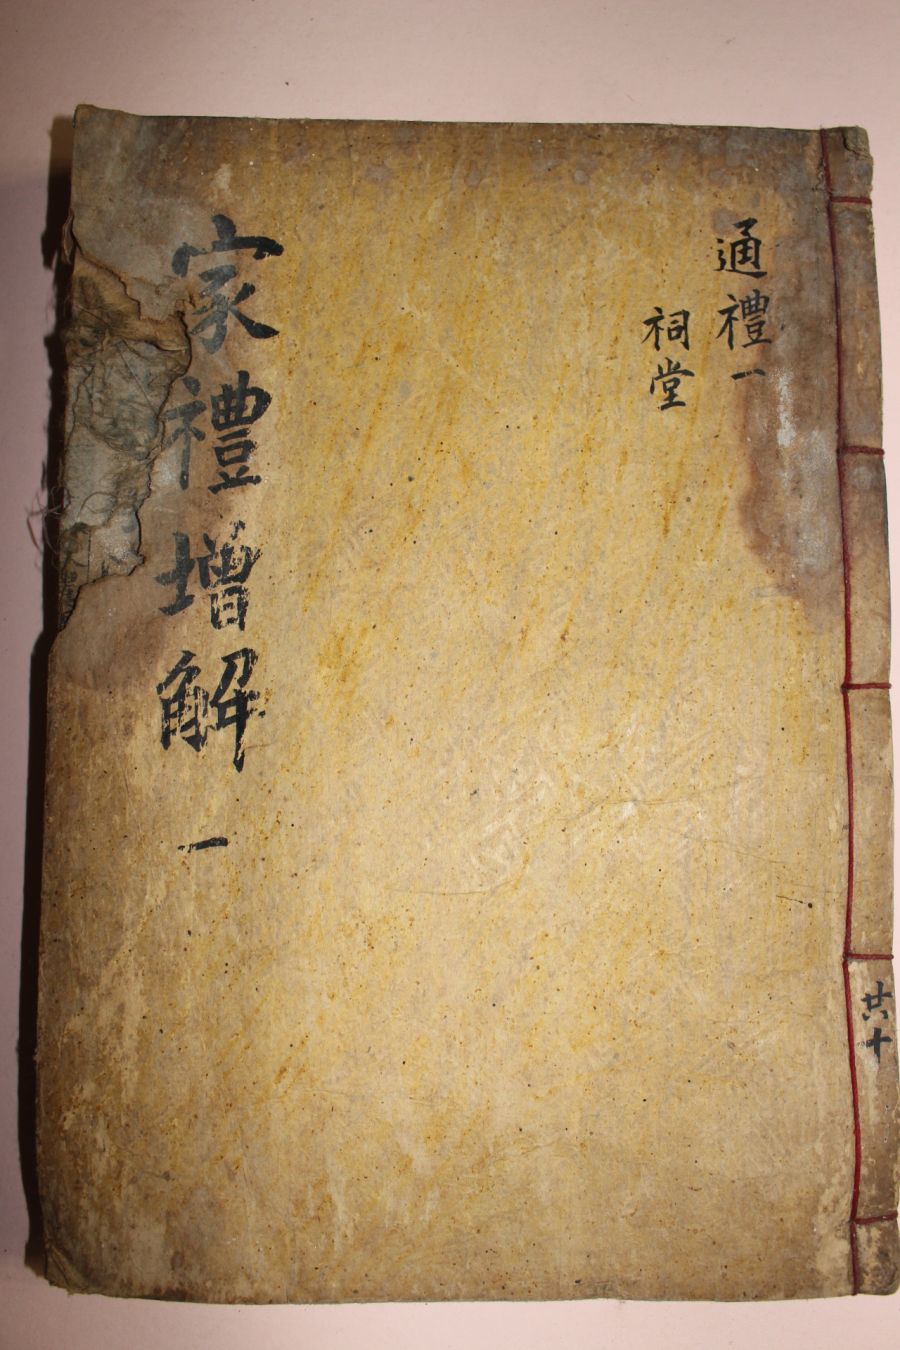 通禮一
祠堂
家禮增解 一
共十